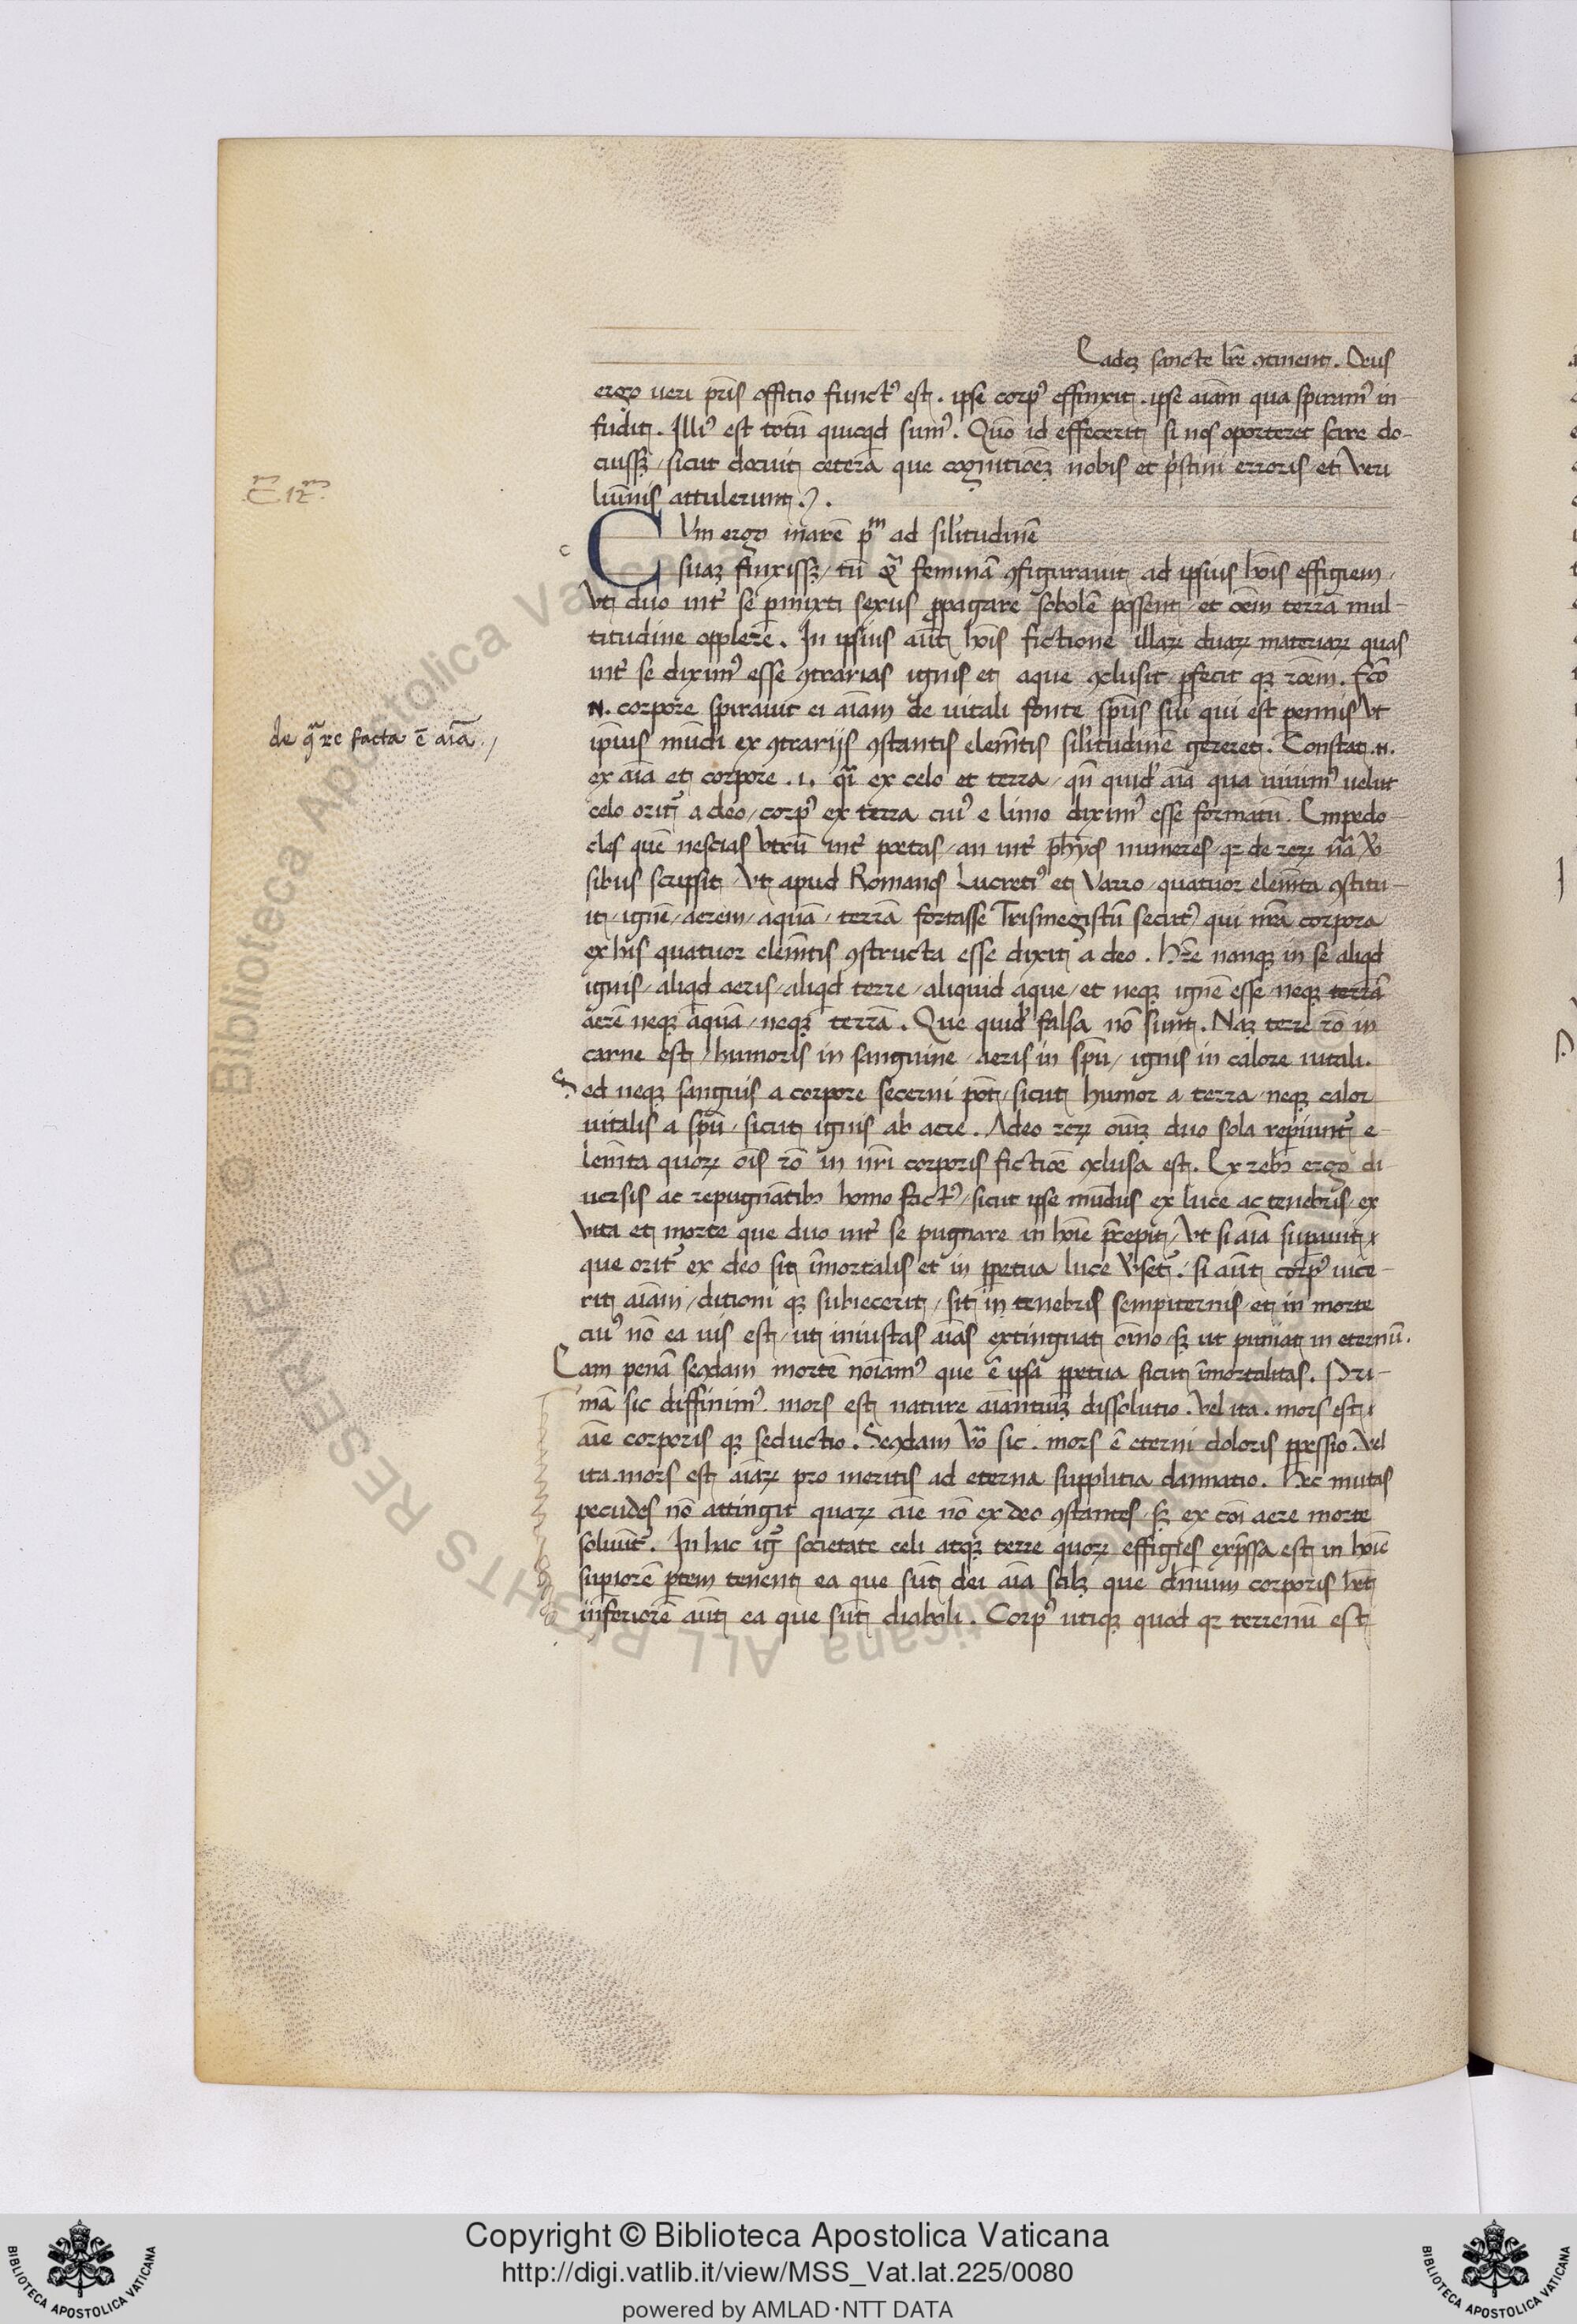 Eadeꝫ sancte lr̄e ꝯtinent. Deus
ergo ueri pr̄is offitio funct᷒ est. ipse corp᷒ effinxit. ipse aīam qua spiram᷒ in
fudit. Illi᷒ est totū quicqd sum᷒. Quō id effecerit si nos oporteret scire do-
cuissꝫ / sicut docuit cetera que cognitioēꝫ nobis et pͥstini erroris et veri
lūīnis attulerunt.
E 12ᵐ
CVm ergo marē pᵐ ad sil'itudinē
c
suaꝫ finxissꝫ / tū feminā ꝯfigurauit ad ipsius hoīs effigiem /
vt duo int᷒ se pmixti sexus ꝓpagare sobolē possent / et oēm terrā mul-
titudine opplere. In ipsius aūt hoīs fictione illaꝝ duaꝝ materiaꝝ quas
int᷒ se dixim᷒ esse ꝯtrarias ignis et aque ꝯclusit ꝑfecit qꝫ rōem. Fc̄o
.N. corpore spirauit ei aīam de uitali fonte spūs sui qui est pennis vt
de qͣ re facta ē aīa.
ipīus mūdi ex ꝯtrarijs ꝯstantis elem̄tis sil'itudinē gereret. Constat .n.
ex aīa et corpore .i. qͣi ex celo et terra / qn̄ quid' aīa qua uiuim᷒ uelut
celo orit᷒ a deo / corp᷒ ex terra cui᷒ e limo dixim᷒ esse formatū. Empedo-
cles quē nescias vtrū int᷒ poetas / an int᷒ phȳcos numeres / qꝛ de reꝝ nā v̓
sibus scripsit / vt apud Romanos Lucreti᷒ et Varro / quatuor elem̄ta ꝯstitu-
it / ignē / aerem / aquā / terrā fortasse Trismegistū secut᷒ qui nr̄a corpora
ex his quatuor elem̄tis ꝯstructa esse dixit a deo. Hr̄e nanqꝫ in se aliqd
ignis / aliqd aeris / aliqd terre / aliquid aque / et neqꝫ ignē esse / neqꝫ terrā
aerē neqꝫ aquā / neqꝫ terrā. Que quid' falsa nō sunt. Naꝫ terre rō in
carne est / humoris in sanguine / aeris in spū / ignis in calore uitali.
Sed neqꝫ sanguis a corpore secerni pōt / sicut humor a terra / neqꝫ calor
uitalis a spū / sicut ignis ab aere. Adeo reꝝ oīuꝫ duo sola repiunt᷒ e-
lem̄ta quoꝝ oīs rō in nr̄i corporis fictiōe ꝯclusa est. Ex rebꝫ ergo di-
uersis ac repugnātibꝫ homo fact᷒ / sicut ipse mundus ex luce ac tenebris / ex
vita et morte que duo int᷒ se pugnare in hoīe pͥcepit / vt si aīa supauit
que orit᷒ ex deo sit īmortalis et in ꝑpetua luce v̓set᷒. si aūt corp᷒ uice-
rit aīam / ditioni qꝫ subiecerit / sit in tenebris sempiternis et in morte
cui᷒ nō ea uis est / ut iniustas aīas extinguat oīno / sꝫ ut puniat in eternū.
Eam penā seꝯdam mortē noīam᷒ que ē ipsa ꝑpetua sicut īmortalitas. Pri-
mā sic diffinim᷒. mors est nature aīantiuꝫ dissolutio. vel ita. mors est
aīe corporis qꝫ seductio. Seꝯdam v̓o sic. mors ē eterni doloris ꝑpessio. vel
ita. mors est aīaꝝ pro meritis ad eterna supplitia damnatio. Hec mutas
pecudes nō attingit quaꝝ aīe nō ex deo ꝯstantes / sꝫ ex cōi aere morte
soluūt᷒. In hac ig᷒ societate celi atqꝫ terre quoꝝ effigies expͥssa est in hoīe
supiorē ptem tenent ea que sūt dei aīa sclꝫ que dn̄ium corporis hēt
inferiorē aūt ea que sūt diaboli. Corp᷒ utiqꝫ quod qꝛ terrenū est
Copyright © Biblioteca Apostolica Vaticana
http://digi.vatlib.it/view/MSS_Vat.lat.225/0080
powered by AMLAD·NTT DATA
BIBLIOTECA APOSTOLICA VATICANA
BIBLIOTECA APOSTOLICA VATICANA